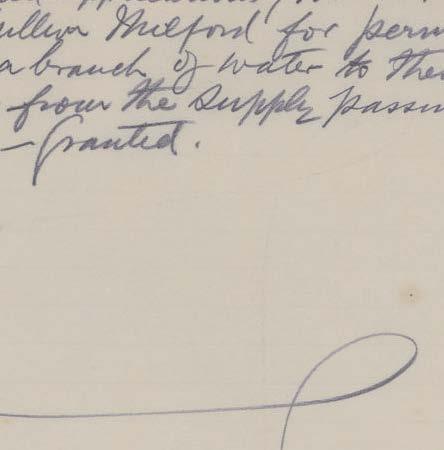 Milford for perm
a branch of water to then
from the supply passin
— Granted.